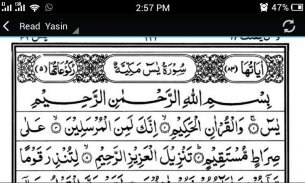 2:57 PM
Read Yasin
اٰیَاتُهَا (۸۳) سُوْرَةُ یٰسٓ مَكِّیَّةٌ (۵) رُكُوْعَاتُهَا
بِسْمِ اللّٰهِ الرَّحْمٰنِ الرَّحِیْمِ
یٰسٓ ۚ وَالْقُرْاٰنِ الْحَكِیْمِ ۙ اِنَّكَ لَمِنَ الْمُرْسَلِیْنَ ۙ عَلٰی
صِرَاطٍ مُّسْتَقِیْمٍ ؕ تَنْزِیْلَ الْعَزِیْزِ الرَّحِیْمِ ۙ لِتُنْذِرَ قَوْمًا